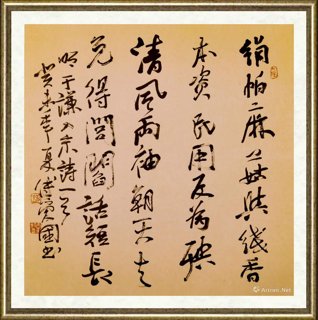 絹帕麻菇與綫香
本資民用反為殃
清風兩袖朝天去
免得閭閻話短長
明于謙入京詩一首
癸未年夏國书
Artron.Net